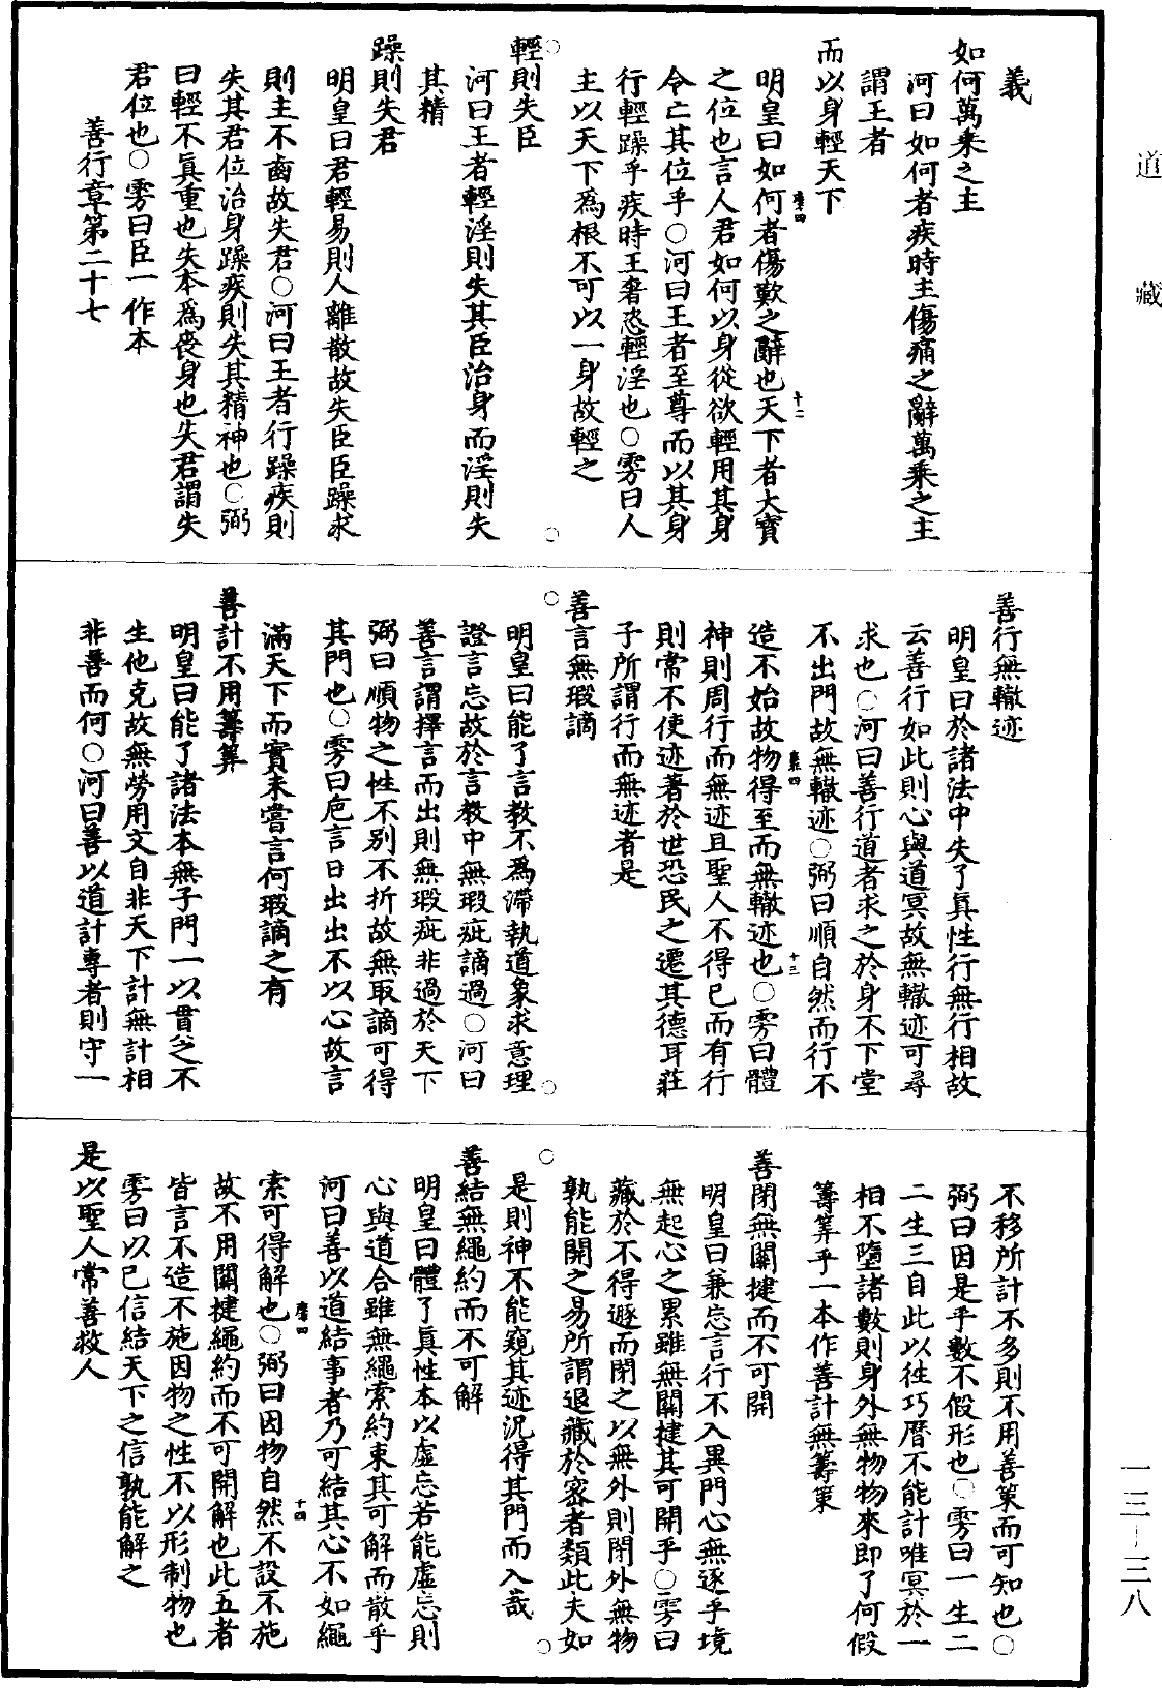 道藏
義
如何萬乘之主
河曰如何者疾時主傷痛之辭萬乘之主
謂王者
而以身輕天下
明皇曰如何者傷歎之辭也天下者大寶
之位也言人君如何以身從欲輕用其身
令亡其位乎○河曰王者至尊而以其身
行輕躁乎疾時王奢恣輕淫也○雱曰人
主以天下為根不可以一身故輕之
輕則失臣
河曰王者輕淫則失其臣治身而淫則失
其精
躁則失君
明皇曰君輕易則人離散故失臣臣躁求
則主不齒故失君○河曰王者行躁疾則
失其君位治身躁疾則失其精神也○弼
曰輕不真重也失本為喪身也失君謂失
君位也○雱曰臣一作本
善行章第二十七
善行無轍迹
明皇曰於諸法中失了真性行無行相故
云善行如此則心與道冥故無轍迹可尋
求也○河曰善行道者求之於身不下堂
不出門故無轍迹○弼曰順自然而行不
造不始故物得至而無轍迹也○雱曰體
神則周行而無迹且聖人不得已而有行
則常不使迹著於世恐民之遷其德耳莊
子所謂行而無迹者是
善言無瑕謫
明皇曰能了言教不為滯執道象求意理
證言忘故於言教中無瑕疵謫過○河曰
善言謂擇言而出則無瑕疵非過於天下
弼曰順物之性不別不折故無取謫可得
其門也○雱曰巵言日出出不以心故言
滿天下而實未嘗言何瑕謫之有
善計不用籌筭
明皇曰能了諸法本無子門一以貫之不
生他克故無勞用文自非天下計無計相
非善而何○河曰善以道計專者則守一
不移所計不多則不用善策而可知也○
弼曰因是乎數不假形也○雱曰一生二
二生三自此以往巧曆不能計唯冥於一
相不墮諸數則身外無物物來即了何假
籌筭乎一本作善計無籌策
善閉無關揵而不可開
明皇曰兼忘言行不入異門心無逐乎境
無起心之累雖無關揵其可開乎○雱曰
藏於不得遯而閉之以無外則閉外無物
孰能開之易所謂退藏於密者類此夫如
是則神不能窺其迹況得其門而入哉
善結無繩約而不可解
明皇曰體了真性本以虛忘若能虛忘則
心與道合雖無繩索約束其可解而散乎
河曰善以道結事者乃可結其心不如繩
索可得解也○弼曰因物自然不設不施
故不用關揵繩約而不可開解也此五者
皆言不造不施因物之性不以形制物也
雱曰以已信結天下之信孰能解之
是以聖人常善救人
一三-三八